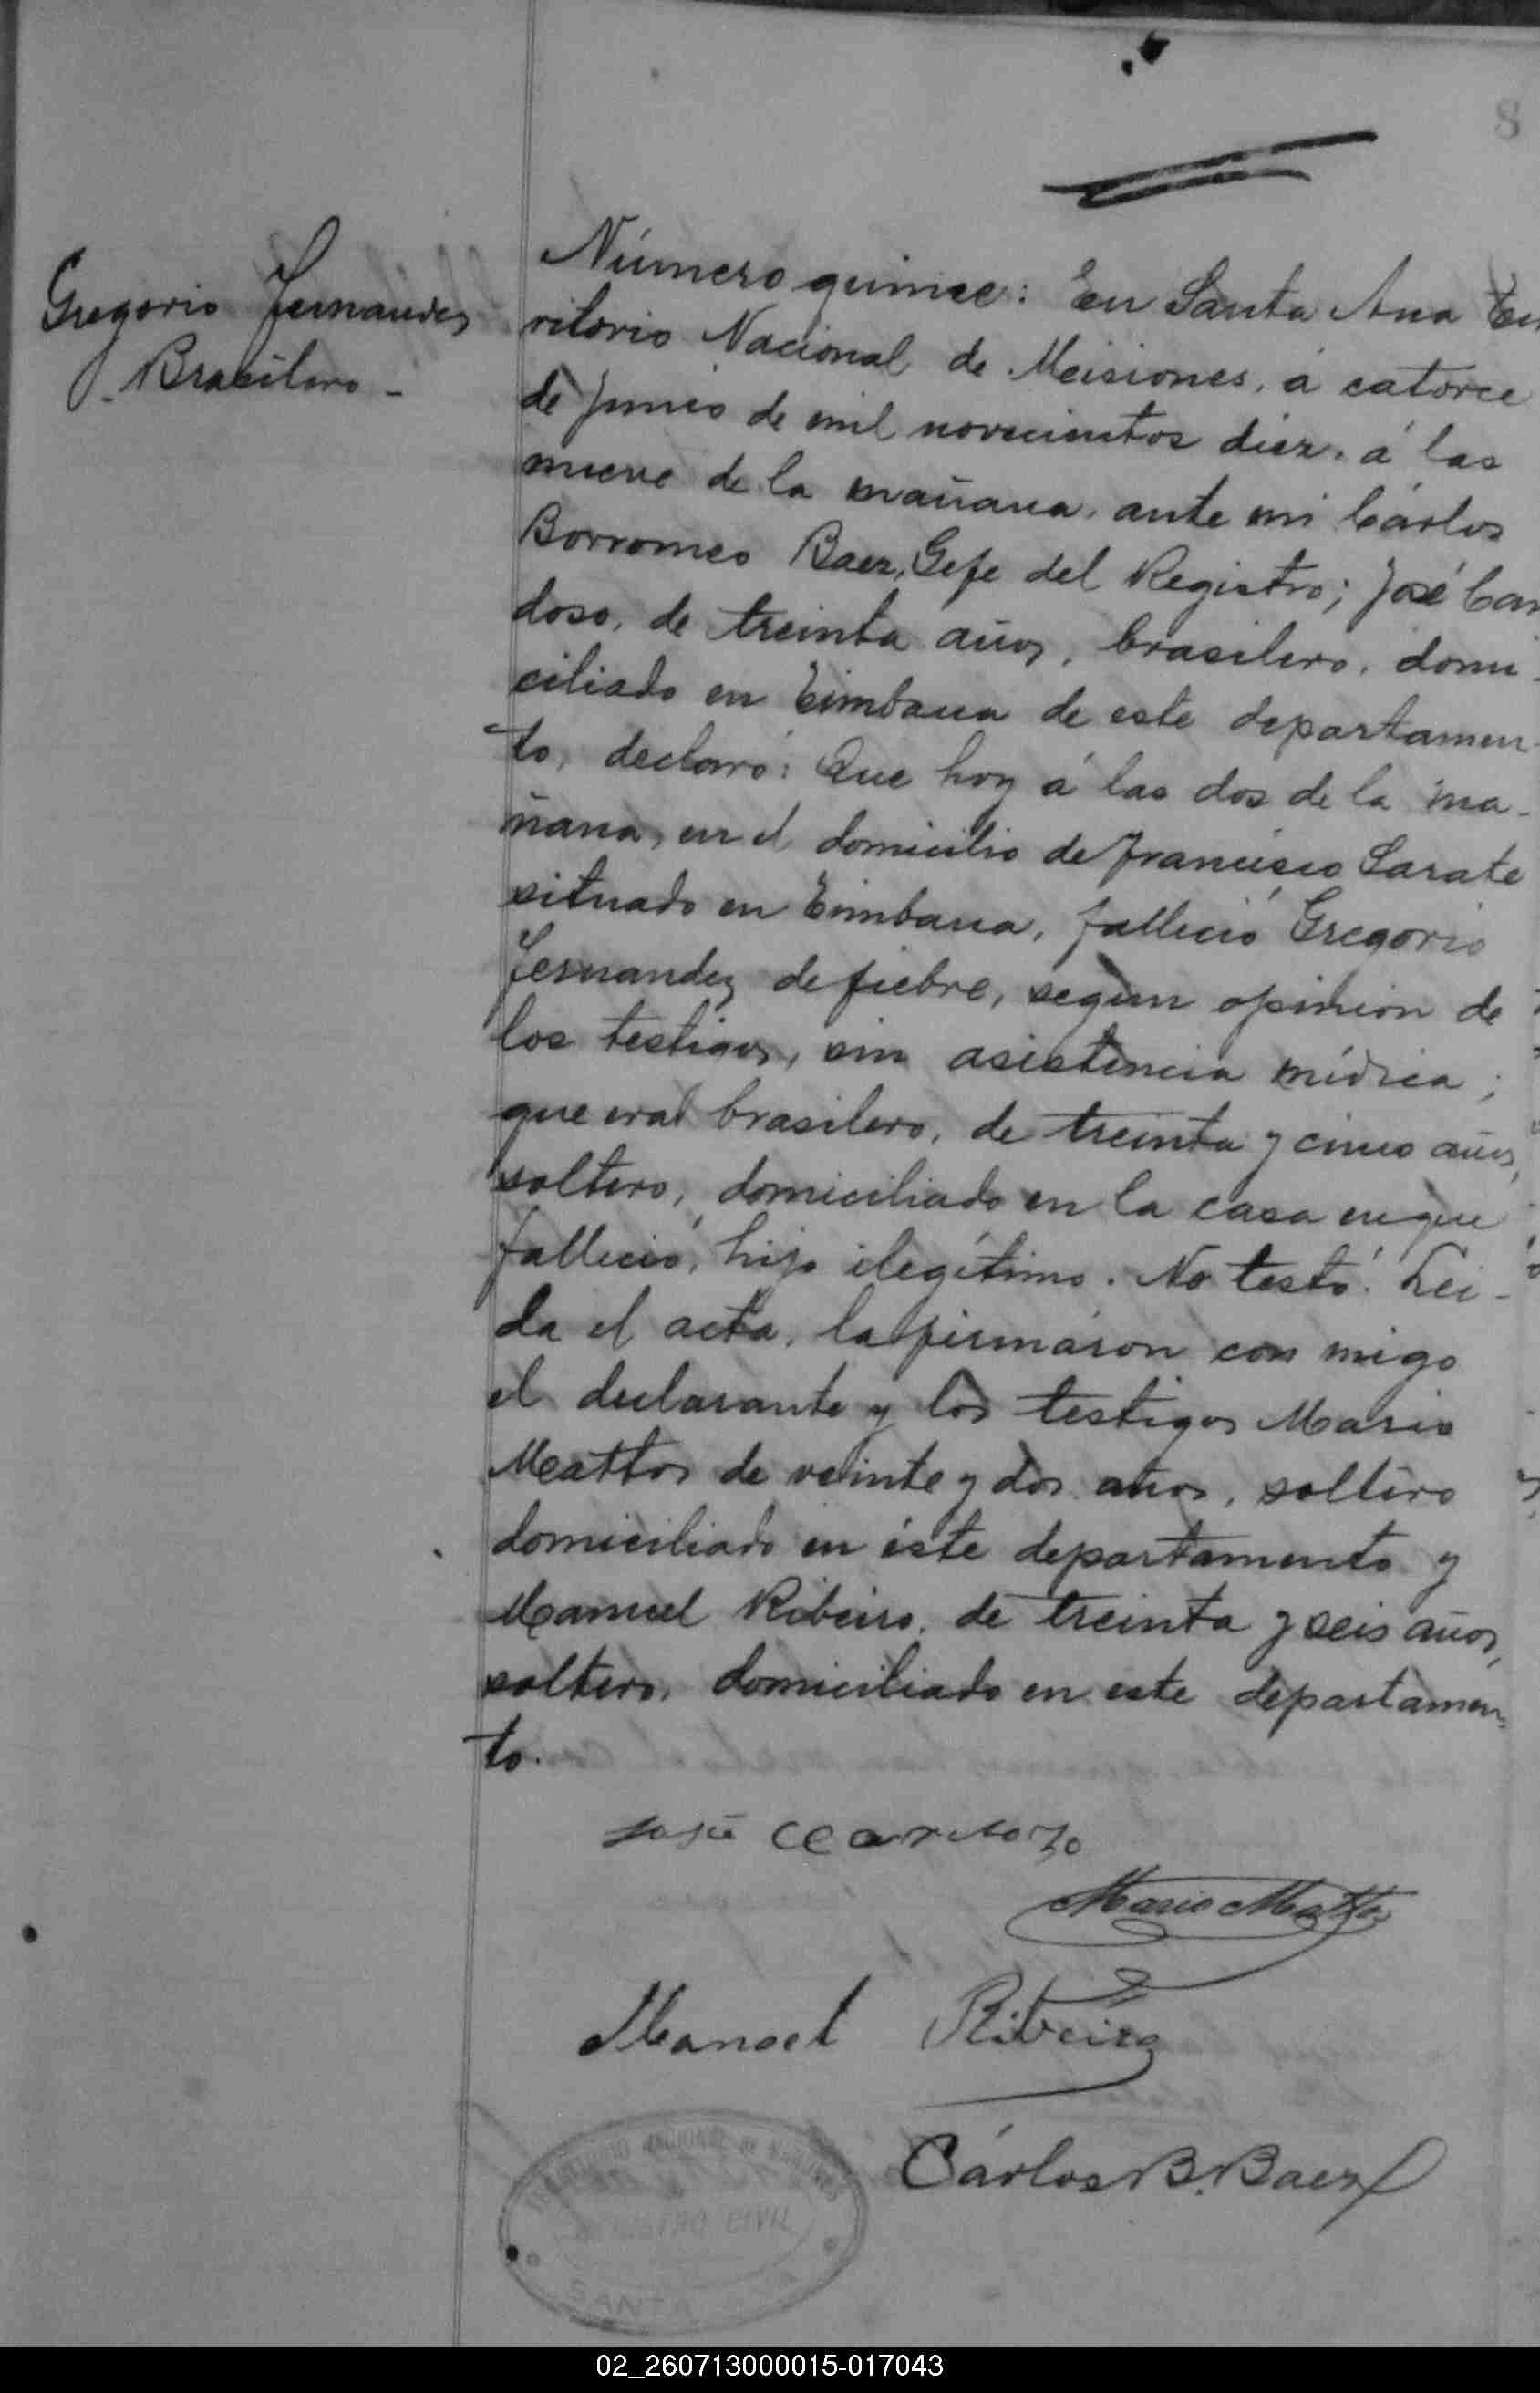 8
Gregorio Fernandez
Brasilero -
Número quince: En Santa Ana Ter
ritorio Nacional de Misiones, á catorce
de Junio de mil novecientos diez, á las
nueve de la mañana, ante mi Cárlos
Borromeo Baez, Gefe del Registro; José Car
doso, de treinta años, brasilero, domi-
ciliado en Timbaua de este departamen-
to, declaró: Que hoy á las dos de la ma-
ñana, en el domicilio de Francisco Sarate
situado en Timbaua, falleció Gregorio
Fernandez de fiebre, segun opinion de
los testigos, sin asistencia médica;
que era brasilero, de treinta y cinco años,
soltero, domiciliado en la casa en que
falleció, hijo ilegítimo. No testó. Lei-
da el acta, la firmáron con migo
el declarante y los testigos Mario
Mattos de veinte y dos años, soltero
domiciliado en éste departamento y
Manuel Ribeiro, de treinta y seis años,
soltero, domiciliado en este departamen-
to.
José Cardozo
Mario Mattos
Manoel Ribeiro
Cárlos B. Baez
TERRITORIO NACIONAL DE MISIONES
REGISTRO CIVIL
SANTA
02_260713000015-017043